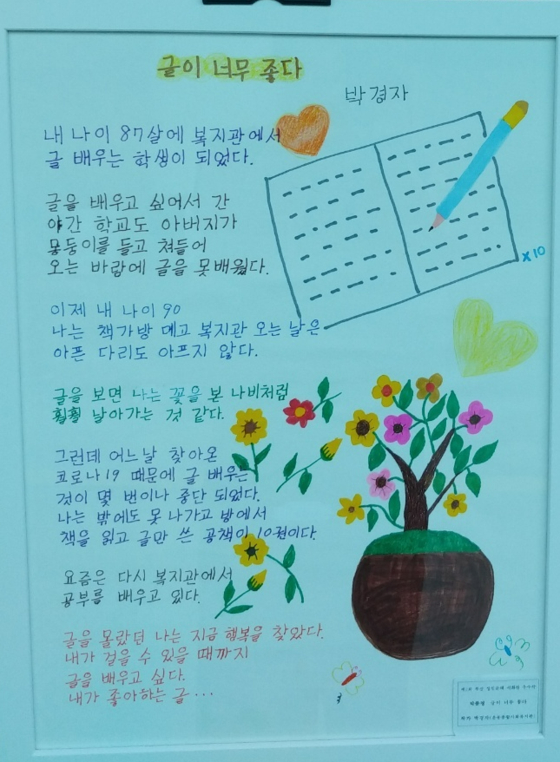 글이 너무 좋다
박경자
내 나이 87살에 복지관에서
글 배우는 학생이 되었다.
글을 배우고 싶어서 간
야간 학교도 아버지가
몽둥이를 들고 쳐들어
오는 바람에 글을 못배웠다.
x10
이제 내 나이 90
나는 책가방 메고 복지관 오는 날은
아픈 다리도 아프지 않다.
글을 보면 나는 꽃을 본 나비처럼
훨훨 날아가는 것 같다.
그런데 어느날 찾아온
코로나19 때문에 글 배우는
것이 몇 번이나 중단 되었다.
나는 밖에도 못 나가고 방에서
책을 읽고 글만 쓴 공책이 10권이다.
요즘은 다시 복지관에서
공부를 배우고 있다.
글을 몰랐던 나는 지금 행복을 찾았다.
내가 걸을 수 있을 때까지
글을 배우고 싶다.
내가 좋아하는 글...